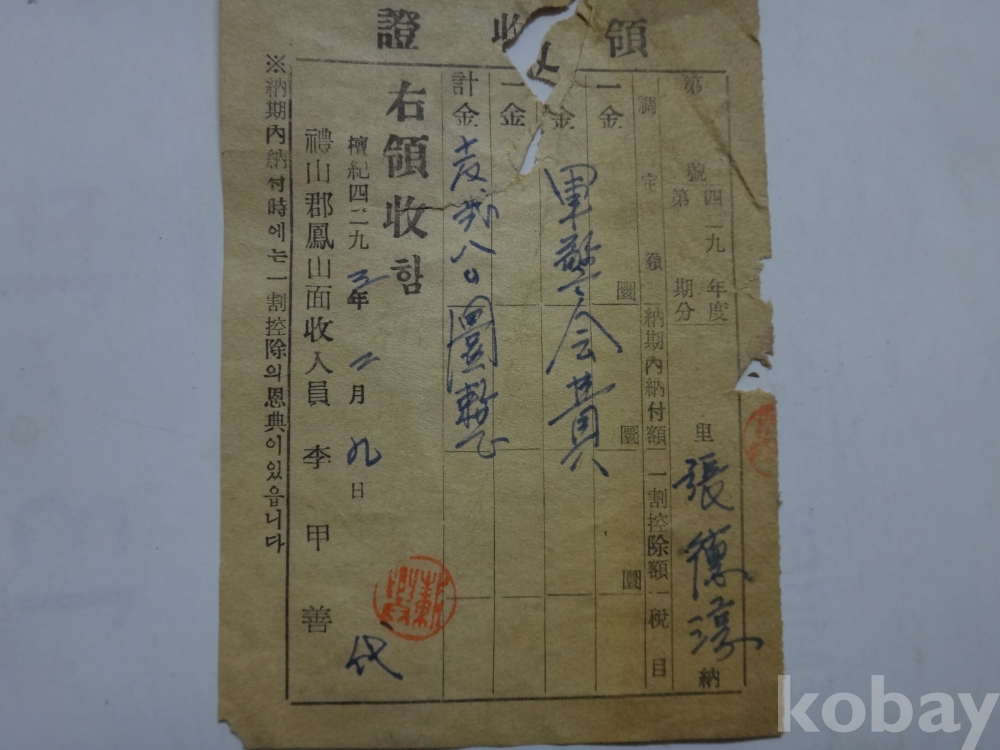 領收證
第 號 四二九 年度
第 期分
里 張德淳 納
調定額 納期內納付額 一割控除額 稅目
一金 圜 圜 圜
金 軍警会費
一金
計金 八〇圜整
右領收함
檀紀四二九三年二月九日
禮山郡鳳山面收入員 李甲善 代
※納期內納付時에는一割控除의恩典이있읍니다
kobay